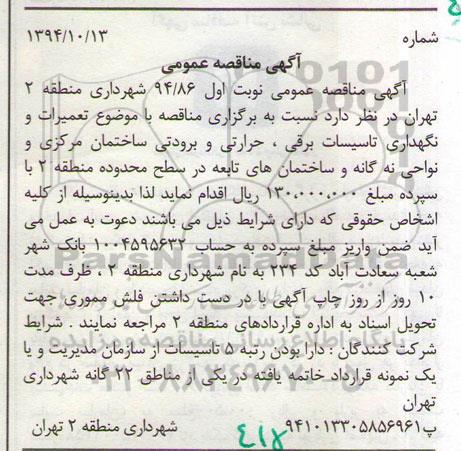 شماره ۱۳۹۴/۱۰/۱۳
آگهی مناقصه عمومی
آگهی مناقصه عمومی نوبت اول ۹۴/۸۶ شهرداری منطقه ۲
تهران در نظر دارد نسبت به برگزاری مناقصه با موضوع تعمیرات و
نگهداری تاسیسات برقی ، حرارتی و برودتی ساختمان مرکزی و
نواحی نه گانه و ساختمان های تابعه در سطح محدوده منطقه ۲ با
سپرده مبلغ ۱۳۰،۰۰۰،۰۰۰ ریال اقدام نماید لذا بدینوسیله از کلیه
اشخاص حقوقی که دارای شرایط ذیل می باشند دعوت به عمل می
آید ضمن واریز مبلغ سپرده به حساب ۱۰۰۴۵۹۵۶۳۲ بانک شهر
شعبه سعادت آباد کد ۲۳۴ به نام شهرداری منطقه ۲ ، ظرف مدت
۱۰ روز از روز چاپ آگهی با در دست داشتن فلش مموری جهت
تحویل اسناد به اداره قراردادهای منطقه ۲ مراجعه نمایند . شرایط
شرکت کنندگان : دارا بودن رتبه ۵ تاسیسات از سازمان مدیریت و یا
یک نمونه قرارداد خاتمه یافته در یکی از مناطق ۲۲ گانه شهرداری
تهران
پ۹۴۱۰۱۳۳۰۵۸۵۶۹۶۱ شهرداری منطقه ۲ تهران
ParsNamadData